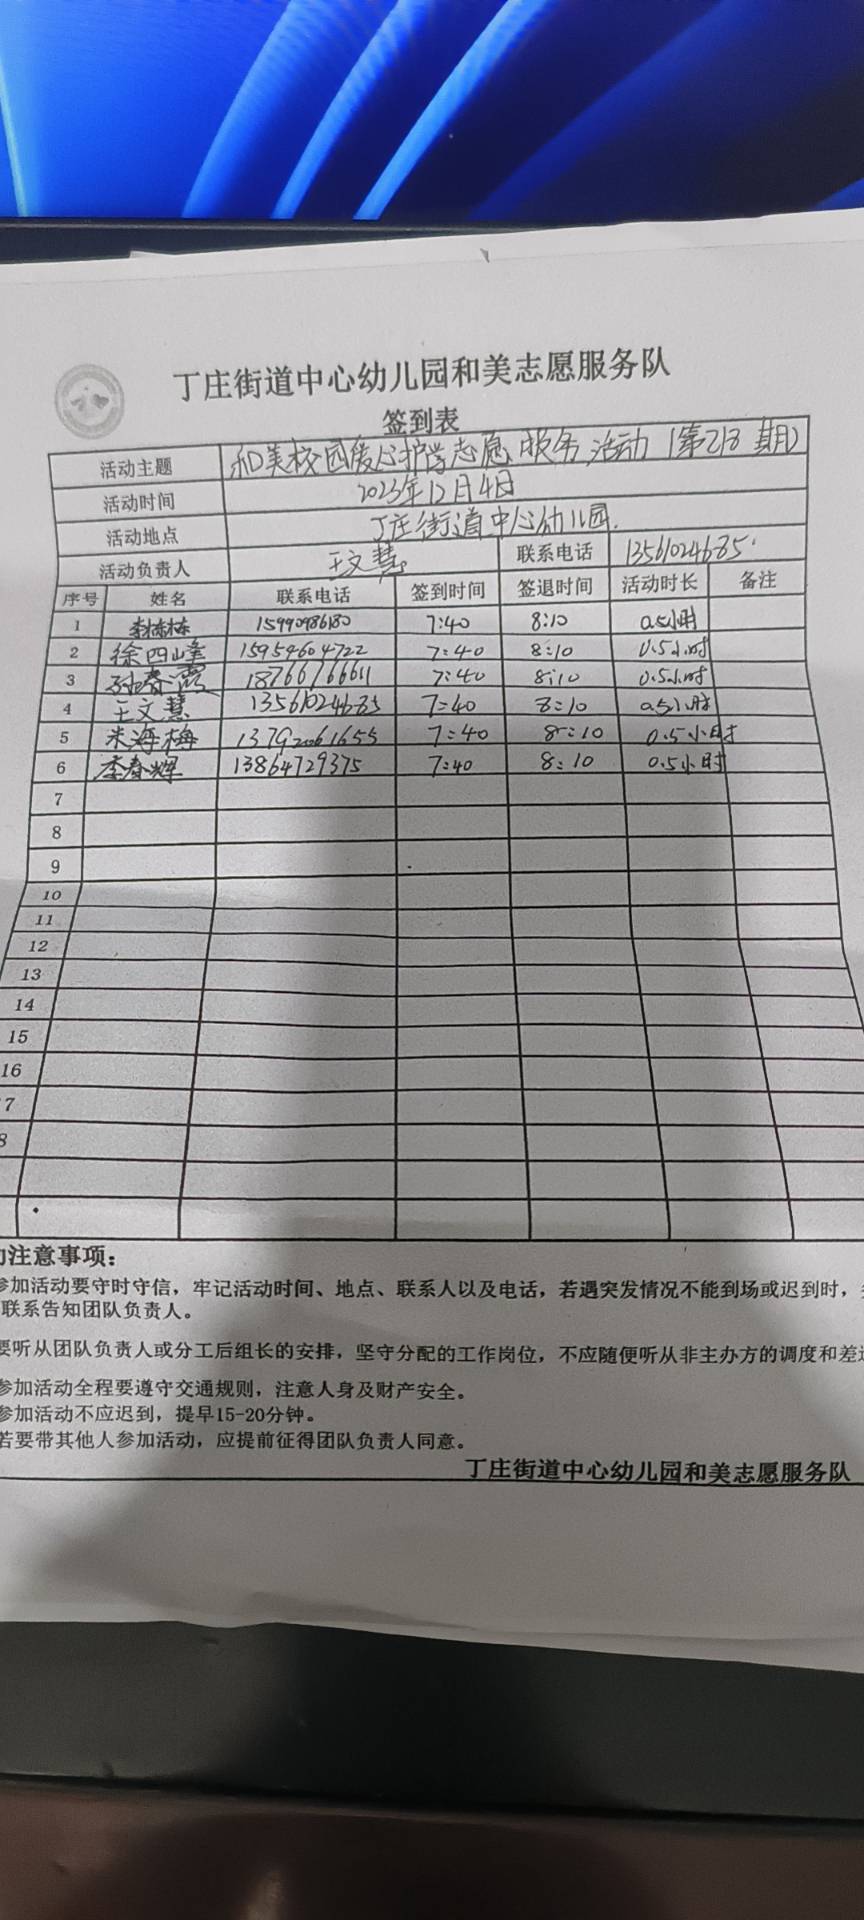 丁庄街道中心幼儿园和美志愿服务队
签到表
活动主题 和美校园爱心护学志愿服务活动(第218期)
活动时间 2023年12月4日
活动地点 丁庄街道中心幼儿园.
活动负责人 王文慧 联系电话 13561024685
序号 姓名 联系电话 签到时间 签退时间 活动时长 备注
1 李栋栋 15990986180 7:40 8:10 0.5小时
2 徐四峰 15954604722 7:40 8:10 0.5小时
3 孙春霞 18766766611 7:40 8:10 0.5小时
4 王文慧 13561024685 7:40 8:10 0.5小时
5 米海梅 13792061655 7:40 8:10 0.5小时
6 李春辉 13864729375 7:40 8:10 0.5小时
7
8
9
10
11
12
13
14
15
16
7
8
注意事项：
参加活动要守时守信，牢记活动时间、地点、联系人以及电话，若遇突发情况不能到场或迟到时，
联系告知团队负责人。
要听从团队负责人或分工后组长的安排，坚守分配的工作岗位，不应随便听从非主办方的调度和差
参加活动全程要遵守交通规则，注意人身及财产安全。
参加活动不应迟到，提早15-20分钟。
若要带其他人参加活动，应提前征得团队负责人同意。
丁庄街道中心幼儿园和美志愿服务队